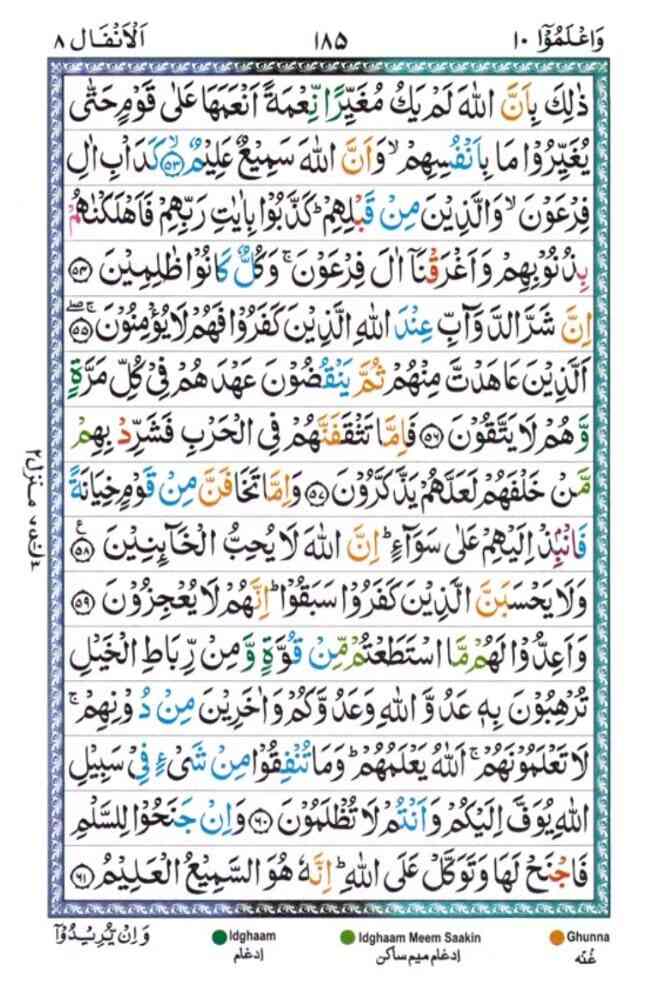 وَاعْلَمُوْۤا ١٠
١٨٥
اَلْاَنْفَال ٨
ذٰلِكَ بِاَنَّ اللّٰهَ لَمْ يَكُ مُغَيِّرًا نِّعْمَةً اَنْعَمَهَا عَلٰى قَوْمٍ حَتّٰى
يُغَيِّرُوْا مَا بِاَنْفُسِهِمْ ۙ وَاَنَّ اللّٰهَ سَمِيْعٌ عَلِيْمٌ ۙ‏﴿٥٣﴾ كَدَاْبِ اٰلِ
فِرْعَوْنَ ۙ وَالَّذِيْنَ مِنْ قَبْلِهِمْ ؕ كَذَّبُوْا بِاٰيٰتِ رَبِّهِمْ فَاَهْلَكْنٰهُمْ
بِذُنُوْبِهِمْ وَاَغْرَقْنَاۤ اٰلَ فِرْعَوْنَ ۚ وَكُلٌّ كَانُوْا ظٰلِمِيْنَ ﴿٥٤﴾
اِنَّ شَرَّ الدَّوَآبِّ عِنْدَ اللّٰهِ الَّذِيْنَ كَفَرُوْا فَهُمْ لَا يُؤْمِنُوْنَ ۖۚ ﴿٥٥﴾
اَلَّذِيْنَ عَاهَدْتَّ مِنْهُمْ ثُمَّ يَنْقُضُوْنَ عَهْدَهُمْ فِيْ كُلِّ مَرَّةٍ
وَّهُمْ لَا يَتَّقُوْنَ ﴿٥٦﴾ فَاِمَّا تَثْقَفَنَّهُمْ فِي الْحَرْبِ فَشَرِّدْ بِهِمْ
مَّنْ خَلْفَهُمْ لَعَلَّهُمْ يَذَّكَّرُوْنَ ﴿٥٧﴾ وَاِمَّا تَخَافَنَّ مِنْ قَوْمٍ خِيَانَةً
فَانْۢبِذْ اِلَيْهِمْ عَلٰى سَوَآءٍ ؕ اِنَّ اللّٰهَ لَا يُحِبُّ الْخَآىِٕنِيْنَ ﴿٥٨﴾
وَلَا يَحْسَبَنَّ الَّذِيْنَ كَفَرُوْا سَبَقُوْا ؕ اِنَّهُمْ لَا يُعْجِزُوْنَ ﴿٥٩﴾
وَاَعِدُّوْا لَهُمْ مَّا اسْتَطَعْتُمْ مِّنْ قُوَّةٍ وَّمِنْ رِّبَاطِ الْخَيْلِ
تُرْهِبُوْنَ بِهٖ عَدُوَّ اللّٰهِ وَعَدُوَّكُمْ وَاٰخَرِيْنَ مِنْ دُوْنِهِمْ ۚ
لَا تَعْلَمُوْنَهُمْ ۚ اَللّٰهُ يَعْلَمُهُمْ ؕ وَمَا تُنْفِقُوْا مِنْ شَيْءٍ فِيْ سَبِيْلِ
اللّٰهِ يُوَفَّ اِلَيْكُمْ وَاَنْتُمْ لَا تُظْلَمُوْنَ ﴿٦٠﴾ وَاِنْ جَنَحُوْا لِلسَّلْمِ
فَاجْنَحْ لَهَا وَتَوَكَّلْ عَلَى اللّٰهِ ؕ اِنَّهٗ هُوَ السَّمِيْعُ الْعَلِيْمُ ﴿٦١﴾
منزل ٢
وَاِنْ يُّرِيْدُوْۤا
Idghaam
ادغام
Idghaam Meem Saakin
ادغام میم ساکن
Ghunna
غنّہ